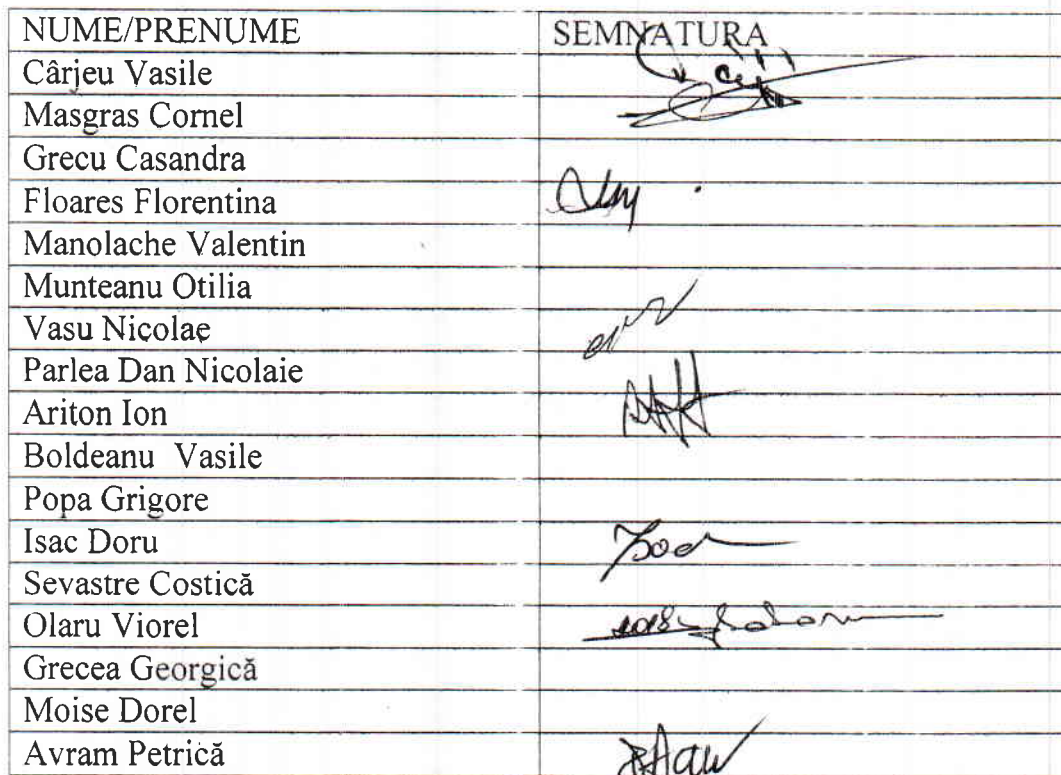 NUME/PRENUME SEMNATURA
Cârjeu Vasile
Masgras Cornel
Grecu Casandra
Floares Florentina
Manolache Valentin
Munteanu Otilia
Vasu Nicolae
Parlea Dan Nicolaie
Ariton Ion
Boldeanu Vasile
Popa Grigore
Isac Doru
Sevastre Costică
Olaru Viorel
Grecea Georgică
Moise Dorel
Avram Petrică